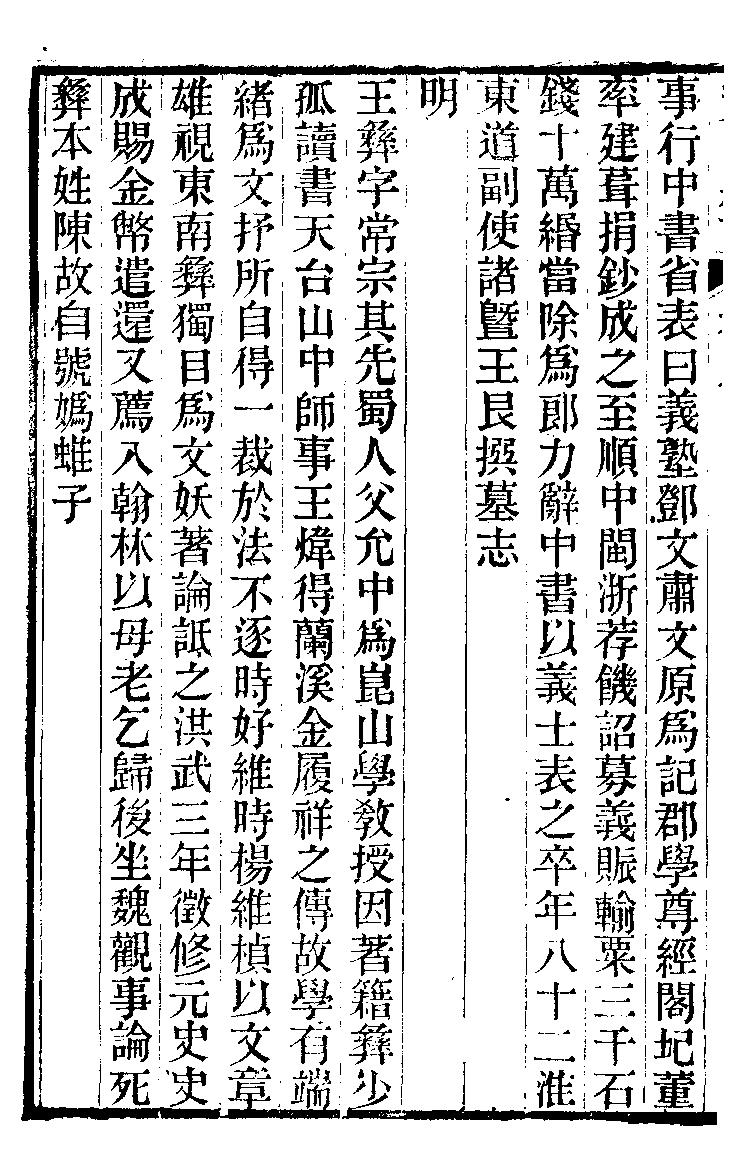 事行中書省表曰義塾鄧文肅文原為記郡學尊經閣圮董
率建葺捐鈔成之至順中閩浙荐饑詔募義賑輸粟三千石
錢十萬緡當除為郎力辭中書以義士表之卒年八十二淮
東道副使諸暨王艮撰墓志
明
王彝字常宗其先蜀人父允中為崑山學教授因著籍彝少
孤讀書天台山中師事王煒得蘭溪金履祥之傳故學有端
緒為文抒所自得一裁於法不逐時好維時楊維楨以文章
雄視東南彝獨目為文妖著論詆之洪武三年徵修元史史
成賜金幣遣還又薦入翰林以母老乞歸後坐魏觀事論死
彝本姓陳故自號媯蜼子